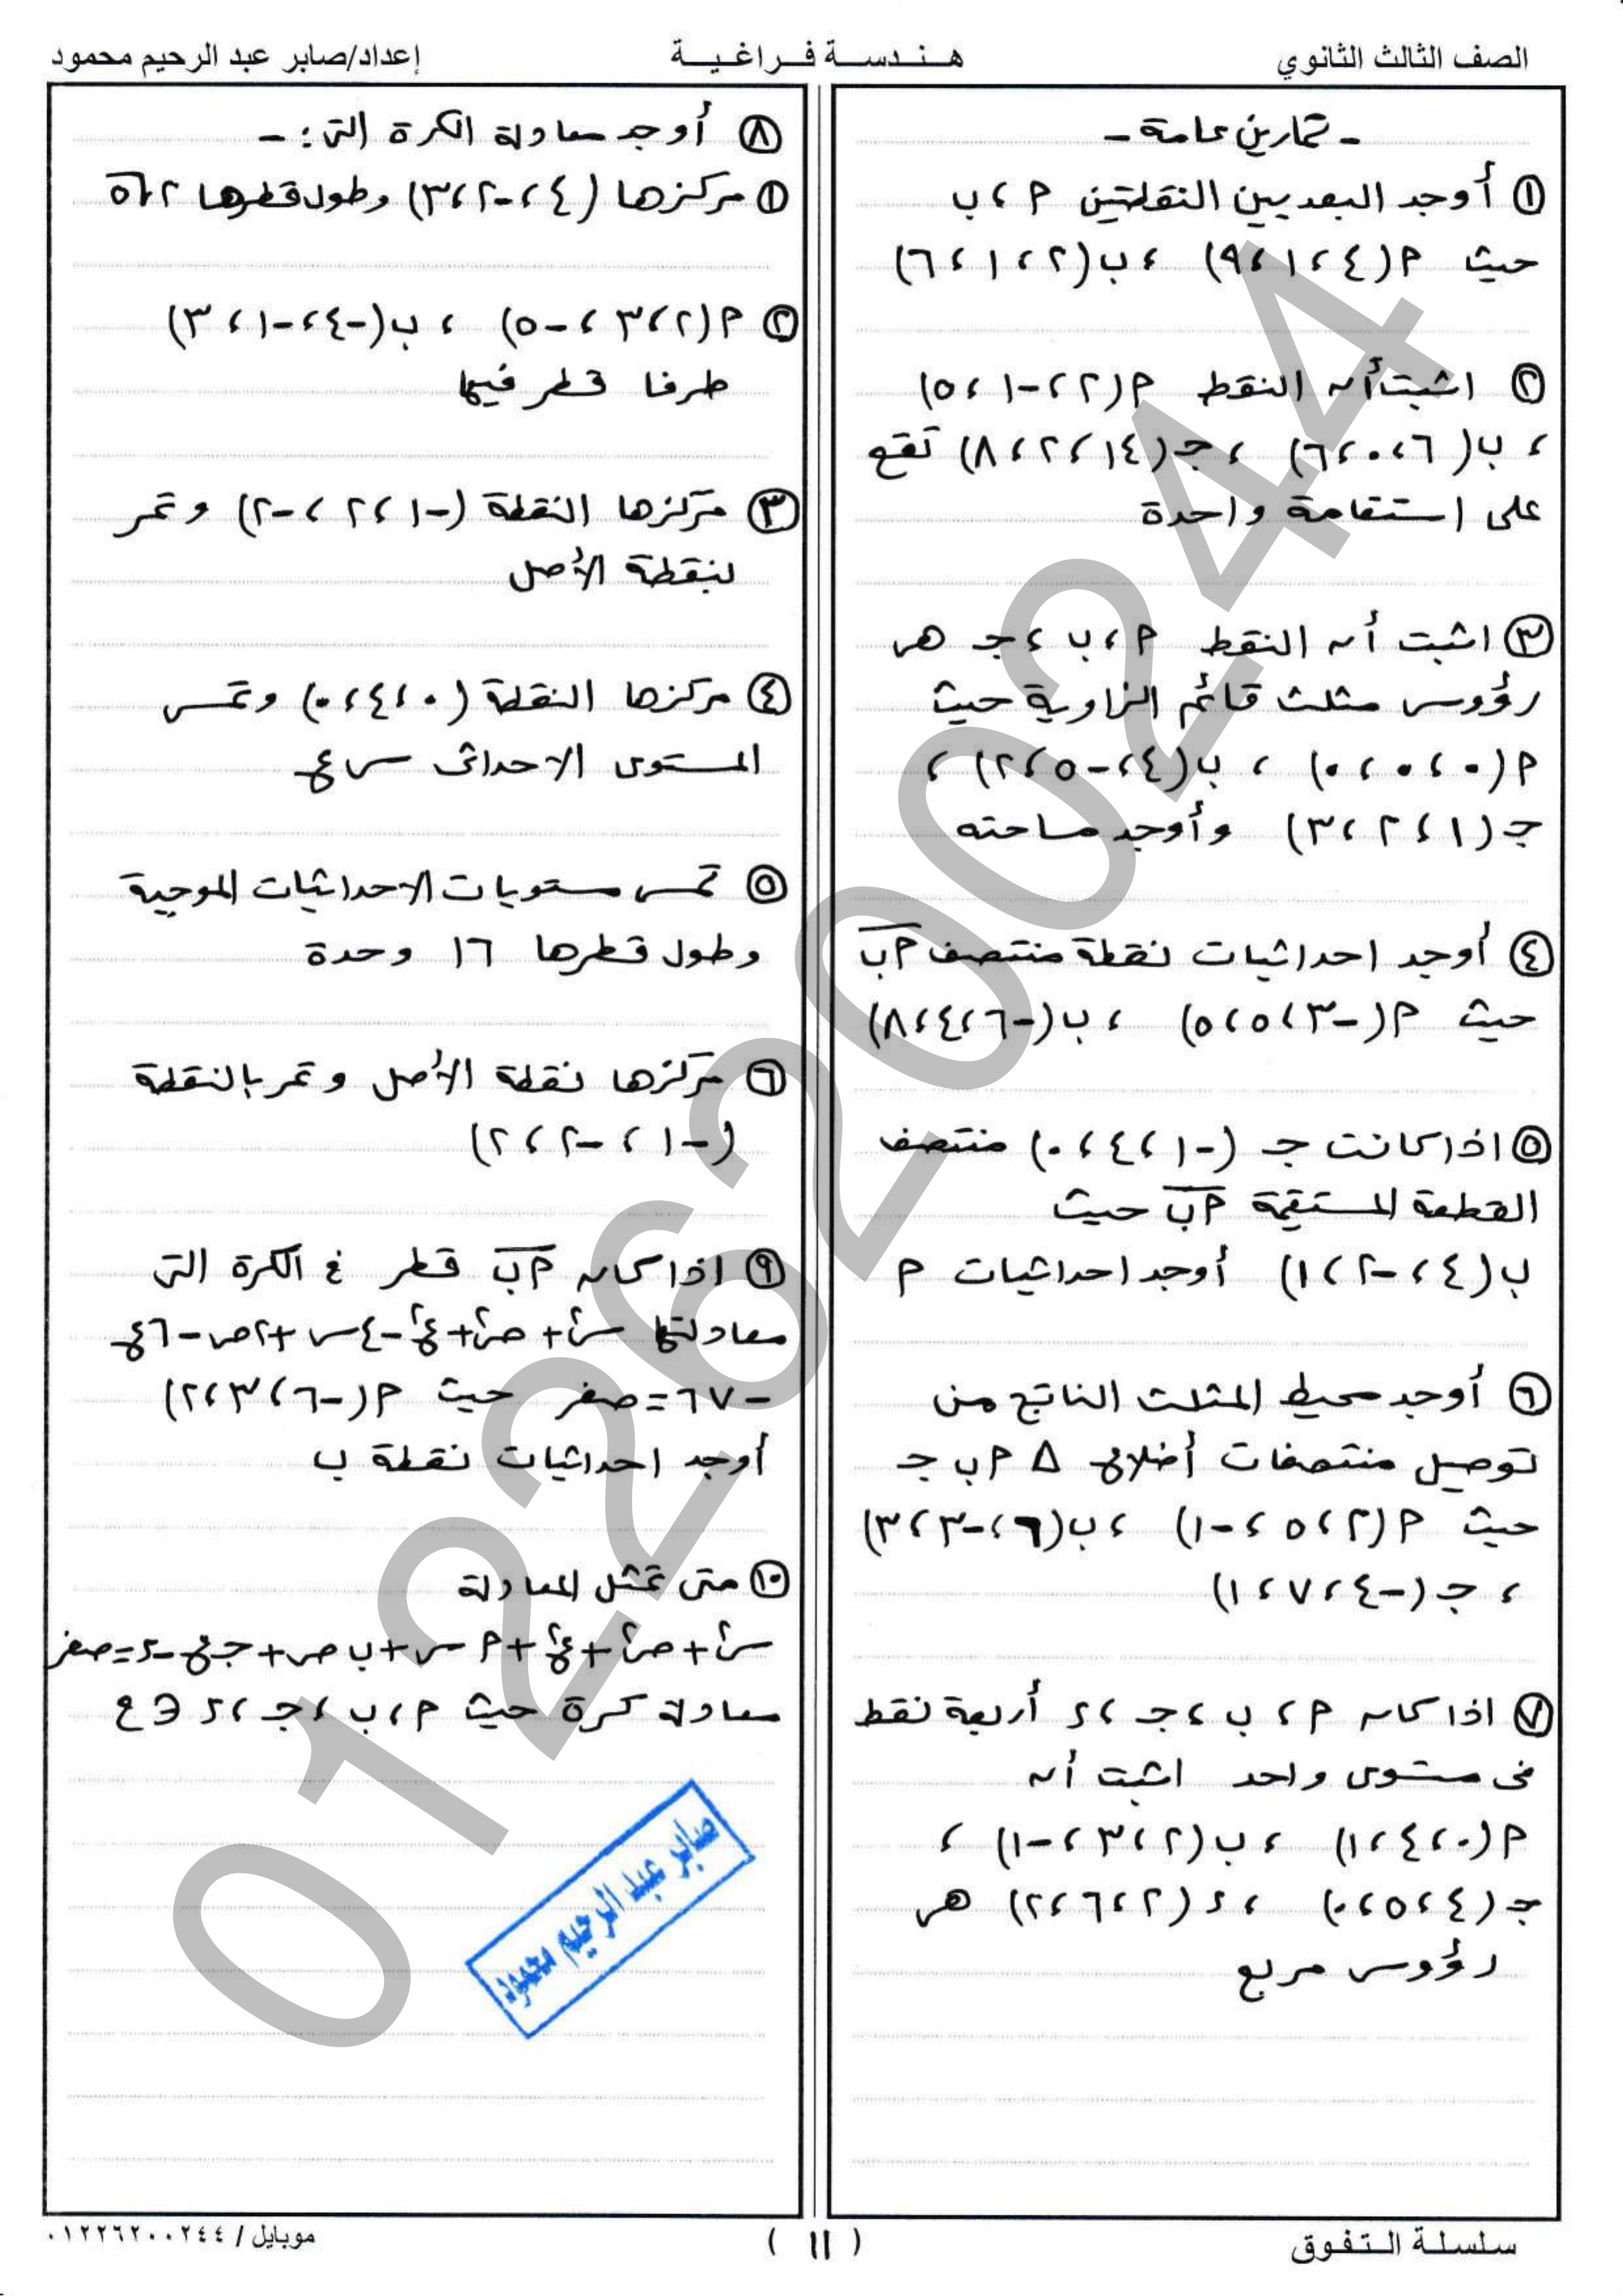 الصف الثالث الثانوي
هندسة فراغية
إعداد/صابر عبد الرحيم محمود
- تمارين عامة -
١ أوجد البعد بين النقطتين م ، ب
حيث م(٤ ، ١ ، ٩) ، ب(٢ ، ١ ، ٦)
٢ اثبت أن النقط م(٢ ، -١ ، ٥)
، ب(٦ ، ٠ ، ٦) ، جـ(١٤ ، ٢ ، ٨) تقع
على استقامة واحدة
٣ اثبت أن النقط م ، ب ، جـ هى
رؤوس مثلث قائم الزاوية حيث
م(٠ ، ٠ ، ٠) ، ب(٤ ، -٥ ، ٢) ،
جـ(١ ، ٢ ، ٣) وأوجد مساحته
٤ أوجد احداثيات نقطة منتصف م ب
حيث م(-٣ ، ٥ ، ٥) ، ب(-٦ ، ٤ ، ٨)
٥ اذا كانت جـ (-١ ، ٤ ، ٠) منتصف
القطعة المستقيمة م ب حيث
ب(٤ ، -٢ ، ١) أوجد احداثيات م
٦ أوجد محيط المثلث الناتج من
توصيل منتصفات أضلاع Δ م ب جـ
حيث م(٢ ، ٥ ، -١) ، ب(٦ ، -٣ ، ٣)
، جـ(-٤ ، ٧ ، ١)
٧ اذا كان م ، ب ، جـ ، ء أربعة نقط
فى مستوى واحد اثبت أن
م(٠ ، ٤ ، ١) ، ب(٢ ، ٣ ، -١) ،
جـ(٤ ، ٥ ، ٠) ، ء(٢ ، ٦ ، ٢) هى
رؤوس مربع
٨ أوجد معادلة الكرة التى :-
١ مركزها (٤ ، -٢ ، ٣) وطول قطرها ٢√٥
٢ م(٢ ، ٣ ، -٥) ، ب(-٤ ، -١ ، ٣)
طرفا قطر فيها
٣ مركزها النقطة (-١ ، ٢ ، -٢) وتمر
بنقطة الأصل
٤ مركزها النقطة (٠ ، ٤ ، ٠) وتمس
المستوى الاحداثى س ع
٥ تمس مستويات الاحداثيات الموجبة
وطول قطرها ١٦ وحدة
٦ مركزها نقطة الأصل وتمر بالنقطة
(-١ ، -٢ ، ٢)
٩ اذا كان م ب قطر فى الكرة التى
معادلتها س²+ ص²+ع²-٤س+٢ص-٦ع
-٦٧=صفر حيث م(-٦ ، ٣ ، ٢)
أوجد احداثيات نقطة ب
١٠ متى تمثل المعادلة
س²+ص²+ع²+م س+ب ص+جـ ع-ء=صفر
معادلة كرة حيث م ، ب ، جـ ، ء ∈ ح
صابر عبد الرحيم محمود
سلسلة التفوق
( ١١ )
موبايل / ٠١٢٢٦٢٠٠٢٤٤
01226200244